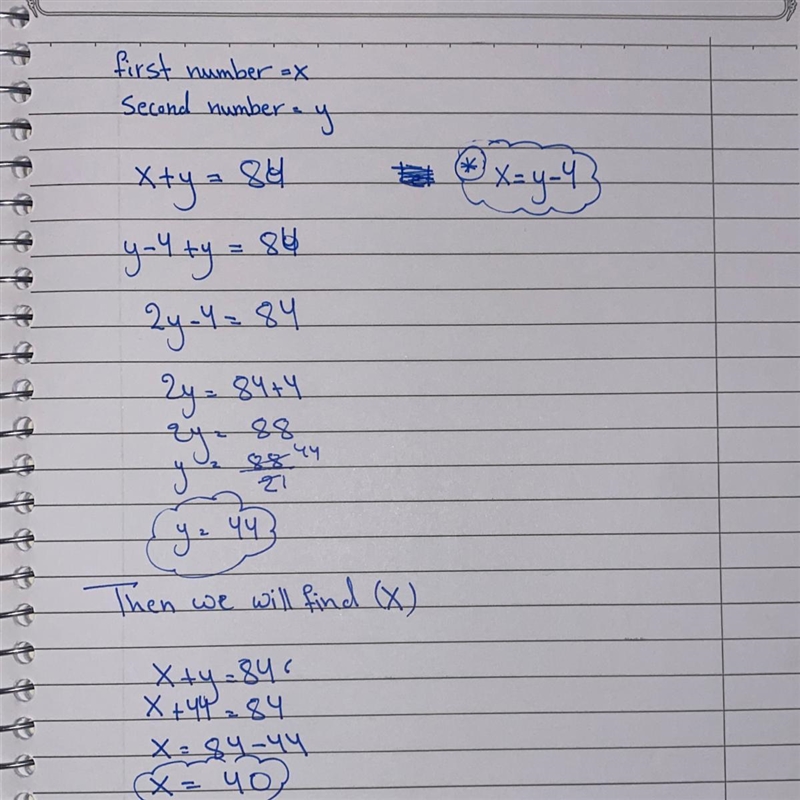 first number = x
Second number = y
x+y = 84
* x=y-4
y-4+y = 84
2y-4 = 84
2y = 84+4
2y = 88
y = 88/2 44 1
y = 44
Then we will find (X)
x+y=84
x+44=84
x = 84-44
x = 40